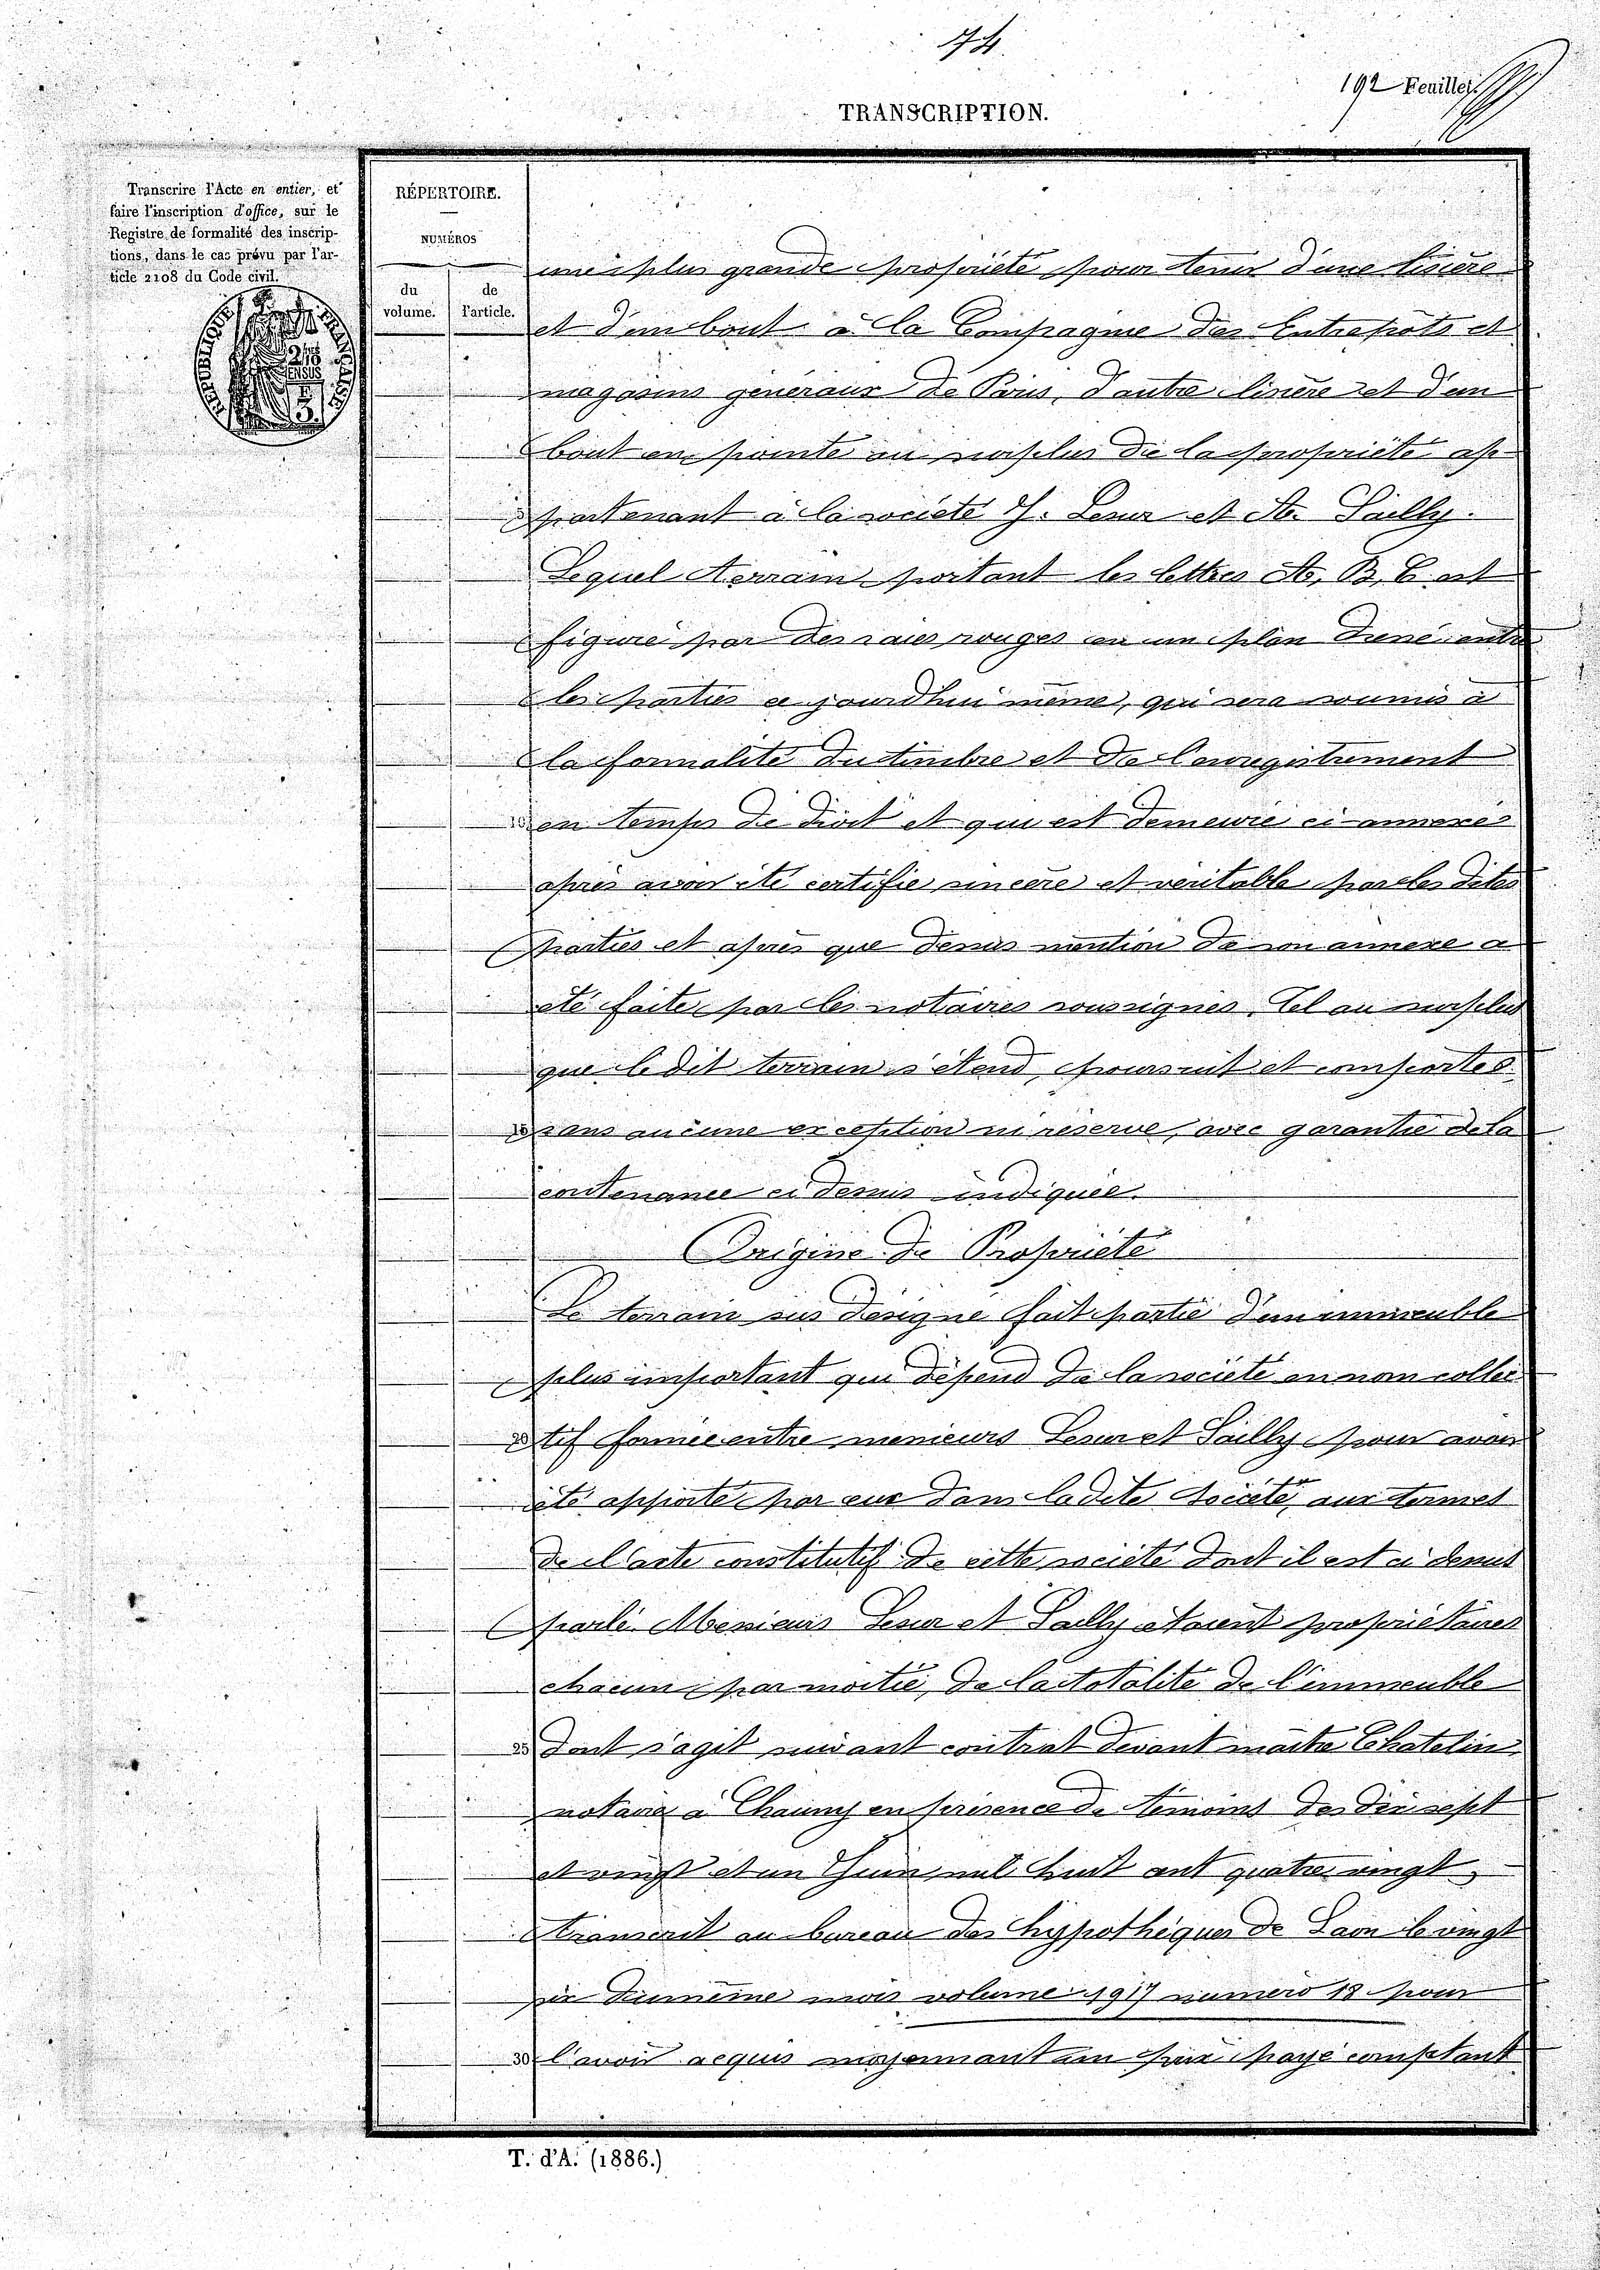 74
192 Feuillet.
TRANSCRIPTION.
Transcrire l'Acte en entier, et
faire l'inscription d'office, sur le
Registre de formalité des inscrip-
tions, dans le cas prévu par l'ar-
ticle 2108 du Code civil.
RÉPERTOIRE.
NUMÉROS
du
volume.
de
l'article.
une plus grande propriété, pour tenir d'une lisière
et d'un bout à la Compagnie des Entrepôts et
magasins généraux de Paris, d'autre lisière et d'un
bout en pointe au surplus de la propriété ap-
5 partenant à la société J. Lesur et A. Sailly.
Lequel terrain portant les lettres A, B, C est
figuré par des raies rouges en un plan dressé entre
les parties ce jourd'hui même, qui sera soumis à
la formalité du timbre et de l'enregistrement
10 en temps de droit et qui est demeuré ci-annexé
après avoir été certifié sincère et véritable par les dites
parties et après que dessus mention de son annexe a
été faite par les notaires soussignés. Tel au surplus
que le dit terrain s'étend, poursuit et comporte
15 sans aucune exception ni réserve, avec garantie de la
contenance ci dessus indiquée.
Origine de Propriété
Le terrain sus désigné fait partie d'un immeuble
plus important qui dépend de la société en nom collec
20 tif formée entre messieurs Lesur et Sailly pour avoir
été apporté par eux dans ladite société, aux termes
de l'acte constitutif de cette société dont il est ci dessus
parlé. Messieurs Lesur et Sailly étaient propriétaires
chacun par moitié, de la totalité de l'immeuble
25 dont s'agit suivant contrat devant maître Chatelin
notaire à Chauny en présence de témoins des dix sept
et vingt et un Juin mil huit cent quatre vingt,
transcrit au bureau des hypothèques de Laon le vingt
six du même mois volume 1917 numéro 18 pour
30 l'avoir acquis moyennant un prix payé comptant
T. d'A. (1886.)